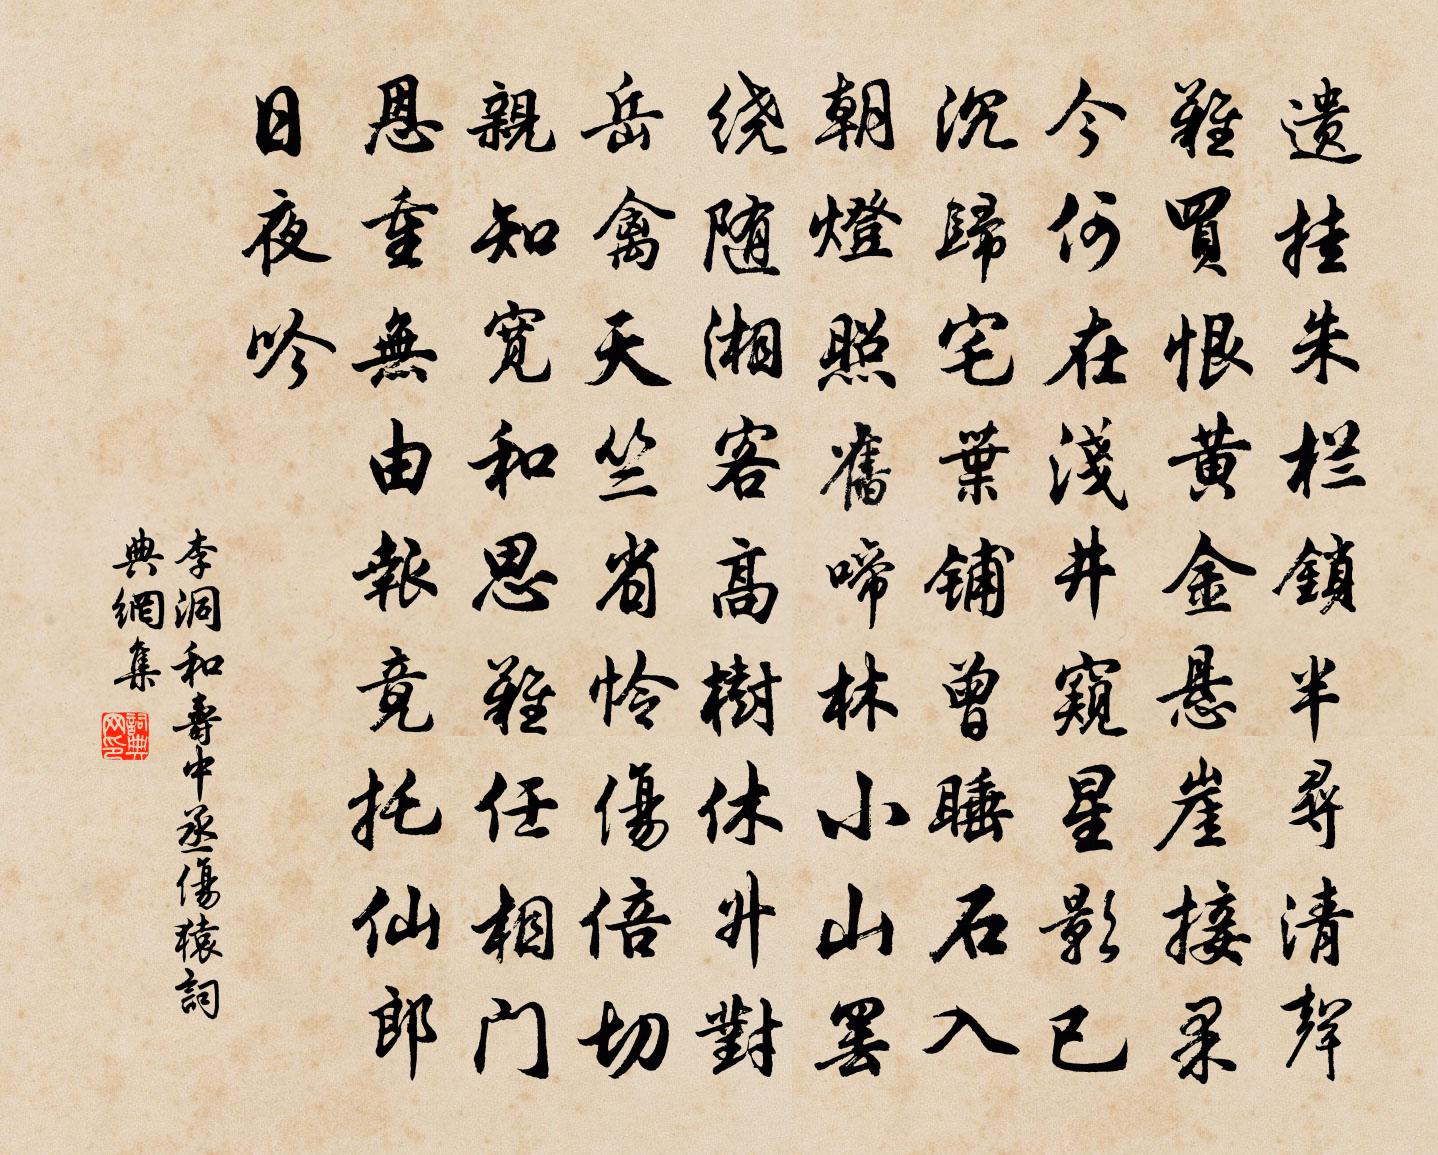 遗挂朱栏鎖半尋清聲
難買恨黄金悬崖接果
今何在淺井窺星影已
沉歸宅葉铺曾睡石入
朝燈照舊啼林小山罢
绕随湘客高樹休升對
岳禽天竺省怜傷倍切
親知宽和思難任相门
恩重無由報竟托仙郎
日夜吟
李洞和壽中丞傷猿詞
典網集
詞典网印